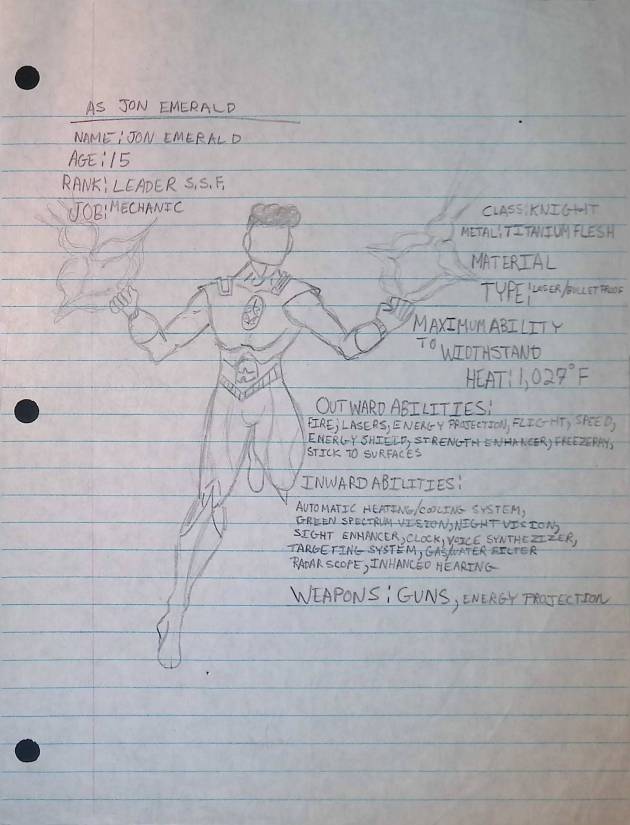 AS JON EMERALD
NAME: JON EMERALD
AGE: 15
RANK: LEADER S.S.F.
JOB: MECHANIC
CLASS: KNIGHT
METAL: TITANIUM FLESH
MATERIAL
TYPE: LASER/BULLET PROOF
MAXIMUM ABILITY
TO WIDTHSTAND
HEAT: 1,027°F
OUTWARD ABILITIES:
FIRE, LASERS, ENERGY PROJECTION, FLIGHT, SPEED,
ENERGY SHIELD, STRENGTH ENHANCER, FREEZERAY,
STICK TO SURFACES
INWARD ABILITIES:
AUTOMATIC HEATING/COOLING SYSTEM,
GREEN SPECTRUM VISION, NIGHT VISION,
SIGHT ENHANCER, CLOCK, VOICE SYNTHEZIZER,
TARGETING SYSTEM, GAS/WATER FILTER
RADAR SCOPE, INHANCED HEARING
WEAPONS: GUNS, ENERGY PROJECTION